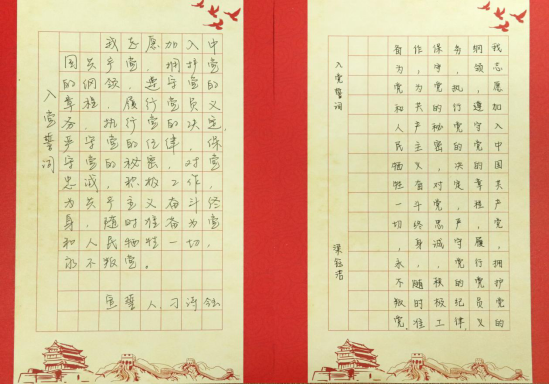 入党誓词
我志愿加入中
国共产党，拥护党
的纲领，遵守党的
章程，履行党员义
务，执行党的决定，
严守党的纪律，保
守党的秘密，对党
忠诚，积极工作，
为共产主义奋斗终
身，随时准备为党
和人民牺牲一切，
永不叛党。
宣誓人，刁诗
入党誓词
我志愿加入中国共产党，拥护党的
纲领，遵守党的章程，履行党员义
务，执行党的决定，严守党的纪律，
保守党的秘密，对党忠诚，积极工
作，为共产主义奋斗终身，随时准
备为党和人民牺牲一切，永不叛党。
梁钰洁